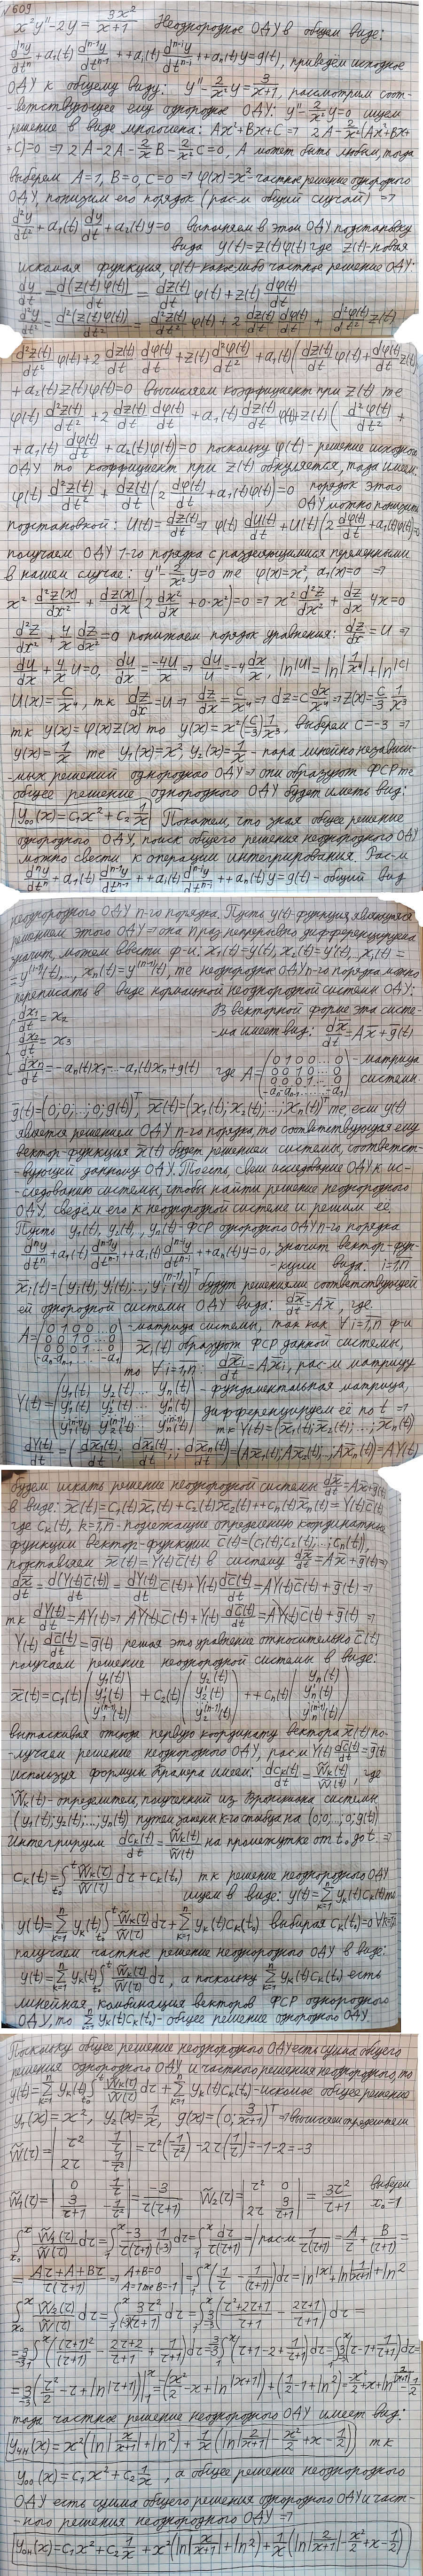 №609
x²y''-2y = 3x²/(x+1) Неоднородное ОДУ в общем виде:
dⁿy/dtⁿ + a₁(t) dⁿ⁻¹y/dtⁿ⁻¹ + + a₁(t) dⁿ⁻ⁱy/dtⁿ⁻ⁱ + + aₙ(t)y = g(t), приведём исходное
ОДУ к общему виду: y'' - 2/x² y = 3/(x+1), рассмотрим соот-
-ветствующее ему однородное ОДУ: y'' - 2/x² y = 0 ищем
решение в виде многочлена: Ax²+Bx+C => 2A - 2/x²(Ax²+Bx+
+C)=0 => 2A-2A - 2/x B - 2/x² C = 0, A может быть любым, тогда
выберем A=1, B=0, C=0 => φ(x)=x² частное решение однородного
ОДУ, понизим его порядок (рас-м общий случай) =>
d²y/dt² + a₁(t) dy/dt + a₂(t)y=0 выполняем в этой ОДУ подстановку
вида y(t)=z(t)φ(t) где z(t)-новая
искомая функция, φ(t)-какое либо частное решение ОДУ:
dy/dt = d(z(t)φ(t))/dt = dz(t)/dt φ(t) + z(t) dφ(t)/dt
d²y/dt² = d²(z(t)φ(t))/dt² = d²z(t)/dt² φ(t) + 2 dz(t)/dt dφ(t)/dt + d²φ(t)/dt² z(t)
d²z(t)/dt² φ(t) + 2 dz(t)/dt dφ(t)/dt + z(t) d²φ(t)/dt² + a₁(t)(dz(t)/dt φ(t) + dφ(t)/dt z(t))
+ a₂(t)z(t)φ(t)=0 вычисляем коэффициент при z(t) те
φ(t) d²z(t)/dt² + 2 dz(t)/dt dφ(t)/dt + a₁(t) dz(t)/dt φ(t) + z(t)(d²φ(t)/dt² +
+ a₁(t) dφ(t)/dt + a₂(t)φ(t))=0 поскольку φ(t)-решение исходного
ОДУ то коэффициент при z(t) обнуляется, тогда имеем:
φ(t) d²z(t)/dt² + dz(t)/dt (2 dφ(t)/dt + a₁(t)φ(t))=0 порядок этого
ОДУ можно понизить
подстановкой: U(t) = dz(t)/dt => φ(t) dU(t)/dt + U(t)(2 dφ(t)/dt + a₁(t)φ(t))=0
получаем ОДУ 1-го порядка с разделяющимися переменными
в нашем случае: y'' - 2/x² y=0 те φ(x)=x², a₁(x)=0 =>
x² d²z(x)/dx² + dz(x)/dx (2 dx²/dx + 0·x²)=0 => x² d²z/dx² + dz/dx 4x=0
d²z/dx² + 4/x dz/dx = 0 понижаем порядок уравнения: dz/dx = U =>
dU/dx + 4/x U=0, dU/dx = -4U/x => dU/U = -4 dx/x, ln|U| = ln|1/x⁴| + ln|C|
U(x) = C/x⁴, тк dz/dx = U => dz/dx = C/x⁴ => dz = C dx/x⁴ => z(x) = C/-3 1/x³
тк y(x)=φ(x)z(x) то y(x)=x²(C/-3)1/x³, выберем C=-3 =>
y(x)=1/x те y₁(x)=x² y₂(x)=1/x - пара линейно независи-
-мых решений однородного ОДУ => они образуют ФСР те
общее решение однородного ОДУ будет иметь вид:
y₀₀(x)=C₁x²+C₂ 1/x Покажем, что зная общее решение
однородного ОДУ, поиск общего решения неоднородного ОДУ
можно свести к операции интегрирования. Рас-м
dⁿy/dtⁿ + a₁(t) dⁿ⁻¹y/dtⁿ⁻¹ + + a₁(t) dⁿ⁻ⁱy/dtⁿ⁻ⁱ + + aₙ(t)y = g(t) - общий вид
неоднородного ОДУ n-го порядка. Пусть y(t)-функция, являющаяся
решением этого ОДУ => она n раз непрерывно дифференцируема
значит, можем ввести ф-и: x₁(t)=y(t), x₂(t)=y'(t), xᵢ(t)=
=y⁽ⁱ⁻¹⁾(t),.., xₙ(t)=y⁽ⁿ⁻¹⁾(t), те неоднородное ОДУ n-го порядка можно
переписать в виде нормальной неоднородной системы ОДУ:
dx₁/dt = x₂ В векторной форме эта систе-
dx₂/dt = x₃ -ма имеет вид: dx̄/dt = Ax̄ + ḡ(t)
dxₙ/dt = -aₙ(t)x₁-..-a₁(t)xₙ+g(t) где A = (0 1 0 0 ... 0; 0 0 1 0 ... 0; 0 0 0 1 ... 0; -aₙ -aₙ₋₁ ... -a₁) - матрица системы
ḡ(t)=(0;0;..;0;g(t))ᵀ, x̄(t)=(x₁(t);x₂(t);..;xₙ(t))ᵀ те, если y(t)
является решением ОДУ n-го порядка, то соответствующая ему
вектор-функция x̄(t) будет решением системы, соответст-
-вующей данному ОДУ. То есть, свели исследование ОДУ к ис-
-следованию системы, чтобы найти решение неоднородного
ОДУ сведём его к неоднородной системе и решим её.
Пусть y₁(t), y₂(t),.., yₙ(t)-ФСР однородного ОДУ n-го порядка
dⁿy/dtⁿ + a₁(t) dⁿ⁻¹y/dtⁿ⁻¹ + + a₁(t) dⁿ⁻ⁱy/dtⁿ⁻ⁱ + + aₙ(t)y=0, значит вектор-фун-
-кции вида: i=1,n
x̄ᵢ(t)=(yᵢ(t), yᵢ'(t),.., yᵢ⁽ⁿ⁻¹⁾(t))ᵀ будут решениями соответствующей
ей однородной системы ОДУ вида: dx̄/dt = Ax̄, где
A = (0 1 0 0 ... 0; 0 0 1 0 ... 0; 0 0 0 1 ... 0; -aₙ -aₙ₋₁ ... -a₁) - матрица системы, так как ∀i=1,n ф-и
x̄ᵢ(t) образуют ФСР данной системы,
то ∀i=1,n: dx̄ᵢ/dt = Ax̄ᵢ, рас-м матрицу
Y(t) = (y₁(t) y₂(t) .. yₙ(t); y₁'(t) y₂'(t) .. yₙ'(t); y₁⁽ⁿ⁻¹⁾(t) y₂⁽ⁿ⁻¹⁾(t) .. yₙ⁽ⁿ⁻¹⁾(t)) - фундаментальная матрица,
дифференцируем её по t =>
тк Y(t)=(x̄₁(t);x̄₂(t);..;x̄ₙ(t))
dY(t)/dt = (dx̄₁(t)/dt; dx̄₂(t)/dt;..; dx̄ₙ(t)/dt) = (Ax̄₁(t);Ax̄₂(t);..;Ax̄ₙ(t))=AY(t)
будем искать решение неоднородной системы dx̄/dt = Ax̄+ḡ(t)
в виде: x̄(t)=C₁(t)x̄₁(t)+C₂(t)x̄₂(t)+ +Cₙ(t)x̄ₙ(t)=Y(t)C̄(t)
где Cₖ(t), k=1,n - подлежащие определению координатные
функции вектор-функции C̄(t)=(C₁(t);C₂(t),..;Cₙ(t)),
подставляем x̄(t)=Y(t)C̄(t) в систему dx̄/dt = Ax̄+ḡ(t) =>
dx̄/dt = d(Y(t)C̄(t))/dt = dY(t)/dt C̄(t) + Y(t) dC̄(t)/dt = AY(t)C̄(t)+ḡ(t) =>
тк dY(t)/dt = AY(t) => AY(t)C̄(t)+Y(t) dC̄(t)/dt = AY(t)C̄(t)+ḡ(t) =>
Y(t) dC̄(t)/dt = ḡ(t) решая это уравнение относительно C̄(t)
получаем решение неоднородной системы в виде:
x̄(t)=C₁(t)(y₁(t); y₁'(t); y₁⁽ⁿ⁻¹⁾(t)) + C₂(t)(y₂(t); y₂'(t); y₂⁽ⁿ⁻¹⁾(t)) + +Cₙ(t)(yₙ(t); yₙ'(t); yₙ⁽ⁿ⁻¹⁾(t))
вытаскивая отсюда первую координату вектора x̄(t) по-
-лучаем решение неоднородного ОДУ, рас-м Y(t) dC̄(t)/dt = ḡ(t)
используя формулы Крамера имеем: dCₖ(t)/dt = W̃ₖ(t)/W̃(t), где
W̃ₖ(t)-определитель, полученный из Вронскиана системы
(y₁(t);y₂(t),..;yₙ(t)) путём замены k-го столбца на (0;0;..;0;g(t))
Интегрируем dCₖ(t)/dt = W̃ₖ(t)/W̃(t) на промежутке от t₀ до t =>
Cₖ(t)=∫ₜ₀ᵗ W̃ₖ(τ)/W̃(τ) dτ + Cₖ(t₀) тк решение неоднородного ОДУ
ищем в виде: y(t)=Σₖ₌₁ⁿ yₖ(t)Cₖ(t) те
y(t)=Σₖ₌₁ⁿ yₖ(t)∫ₜ₀ᵗ W̃ₖ(τ)/W̃(τ) dτ + Σₖ₌₁ⁿ yₖ(t)Cₖ(t₀) выбирая Cₖ(t₀)=0 ∀k=1,n
получаем частное решение неоднородного ОДУ в виде:
y(t)=Σₖ₌₁ⁿ yₖ(t)∫ₜ₀ᵗ W̃ₖ(τ)/W̃(τ) dτ, а поскольку Σₖ₌₁ⁿ yₖ(t)Cₖ(t₀) есть
линейная комбинация векторов ФСР однородного
ОДУ, то Σₖ₌₁ⁿ yₖ(t)Cₖ(t₀)-общее решение однородного ОДУ.
Поскольку общее решение неоднородного ОДУ есть сумма общего
решения однородного ОДУ и частного решения неоднородного, то
y(t)=Σₖ₌₁ⁿ yₖ(t)∫ₜ₀ᵗ W̃ₖ(τ)/W̃(τ) dτ + Σₖ₌₁ⁿ yₖ(t)Cₖ(t₀)-искомое общее решение
y₁(x)=x², y₂(x)=1/x, g(x)=(0; 3/(x+1))ᵀ => вычислим определители
W̃(τ) = |τ² 1/τ; 2τ -1/τ²| = τ²(-1/τ²)-2τ(1/τ)=-1-2=-3
W̃₁(τ) = |0 1/τ; 3/(τ+1) -1/τ²| = -3/(τ(τ+1)) W̃₂(τ) = |τ² 0; 2τ 3/(τ+1)| = 3τ²/(τ+1) выберем x₀=1
∫ₓ₀ˣ W̃₁(τ)/W̃(τ) dτ = ∫₁ˣ -3/(τ(τ+1)) 1/(-3) dτ = ∫₁ˣ dτ/(τ(τ+1)) = |рас-м 1/(τ(τ+1)) = A/τ + B/(τ+1) =
= (Aτ+A+Bτ)/(τ(τ+1)) => A+B=0 A=1 те B=-1| = ∫₁ˣ(1/τ - 1/(τ+1))dτ = ln|x|+ln|1/(x+1)|+ln2
∫ₓ₀ˣ W̃₂(τ)/W̃(τ) dτ = ∫₁ˣ 1/(-3) 3τ²/(τ+1) dτ = ∫₁ˣ 3/-3 ((τ²+2τ+1)/(τ+1) - (2τ+1)/(τ+1))dτ =
= 3/-3 ∫₁ˣ((τ+1)²/(τ+1) - (2τ+2)/(τ+1) + 1/(τ+1))dτ = 3/-3 ∫₁ˣ(τ+1-2+1/(τ+1))dτ = 3/-3 ∫₁ˣ(τ-1+1/(τ+1))dτ =
= 3/-3 (τ²/2 - τ + ln|τ+1|)|₁ˣ = -(x²/2 - x + ln|x+1|) + (1/2 - 1 + ln2) = -x²/2 + x + ln|2/(x+1)| - 1/2
тогда частное решение неоднородного ОДУ имеет вид:
yчн(x)=x²(ln|x/(x+1)|+ln2)+1/x(ln|2/(x+1)|-x²/2+x-1/2) тк
y₀₀(x)=C₁x²+C₂ 1/x, а общее решение неоднородного
ОДУ есть сумма общего решения однородного ОДУ и част-
-ного решения неоднородного ОДУ =>
yон(x)=C₁x²+C₂ 1/x + x²(ln|x/(x+1)|+ln2)+1/x(ln|2/(x+1)|-x²/2+x-1/2)